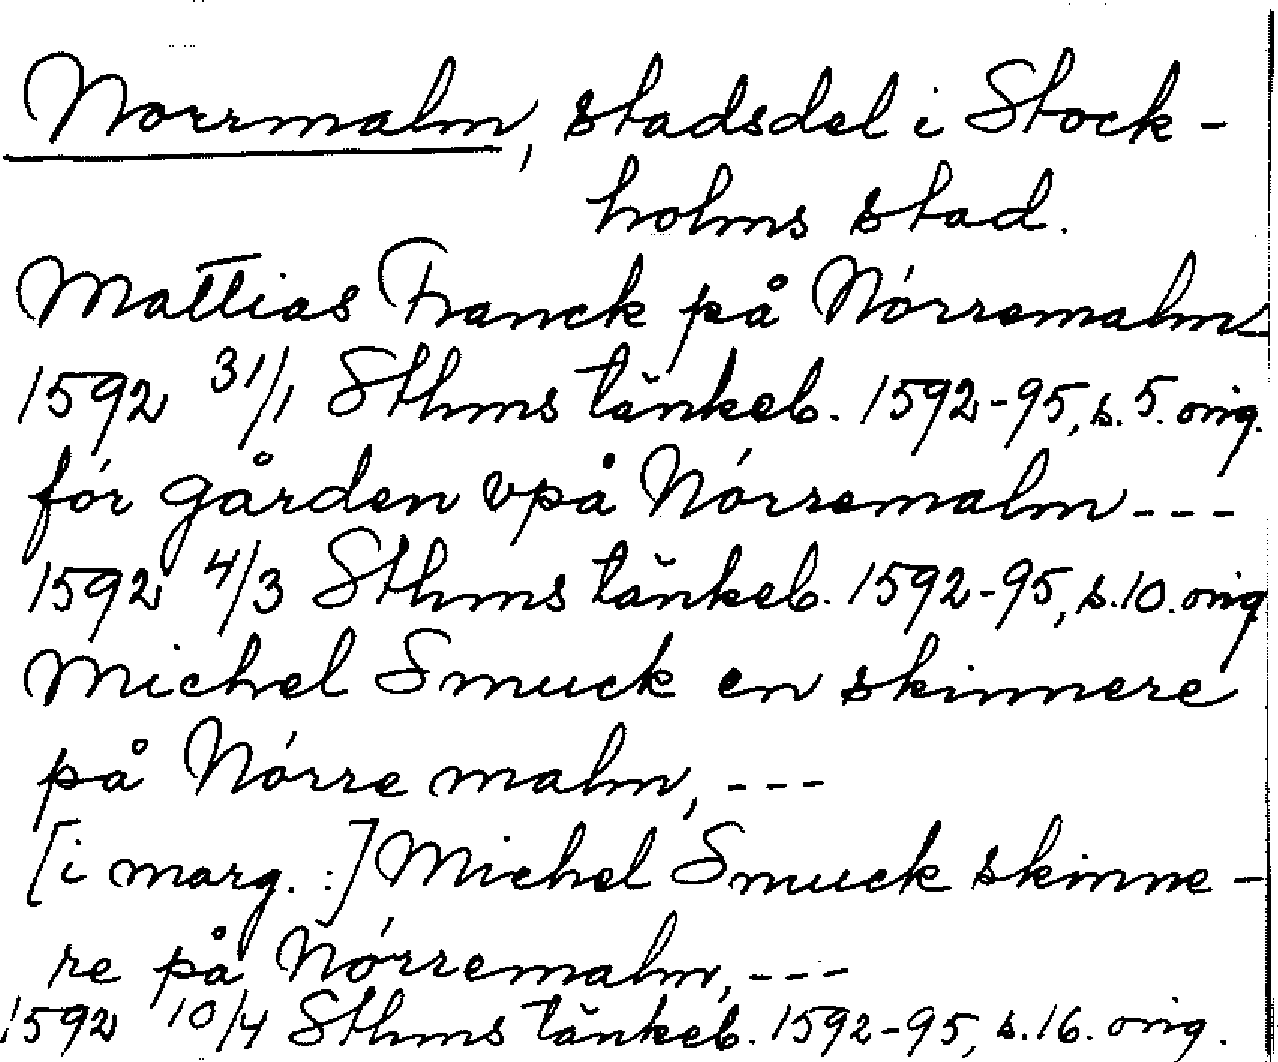 Norrmalm, stadsdel i Stock-
holms stad.
Mattias Franck på Nórremalm
1592 31/1 Sthms tänkeb. 1592-95, s. 5. orig.
fór gården vpå Nórremalm ---
1592 4/3 Sthms tänkeb. 1592-95, s. 10. orig
Michel Smuck en skinnere
på Nórre malm, ---
[i marg. :] Michel Smuck skinne-
re på Nórremalm, ---
1592 10/4 Sthms tänkeb. 1592-95, s. 16. orig.